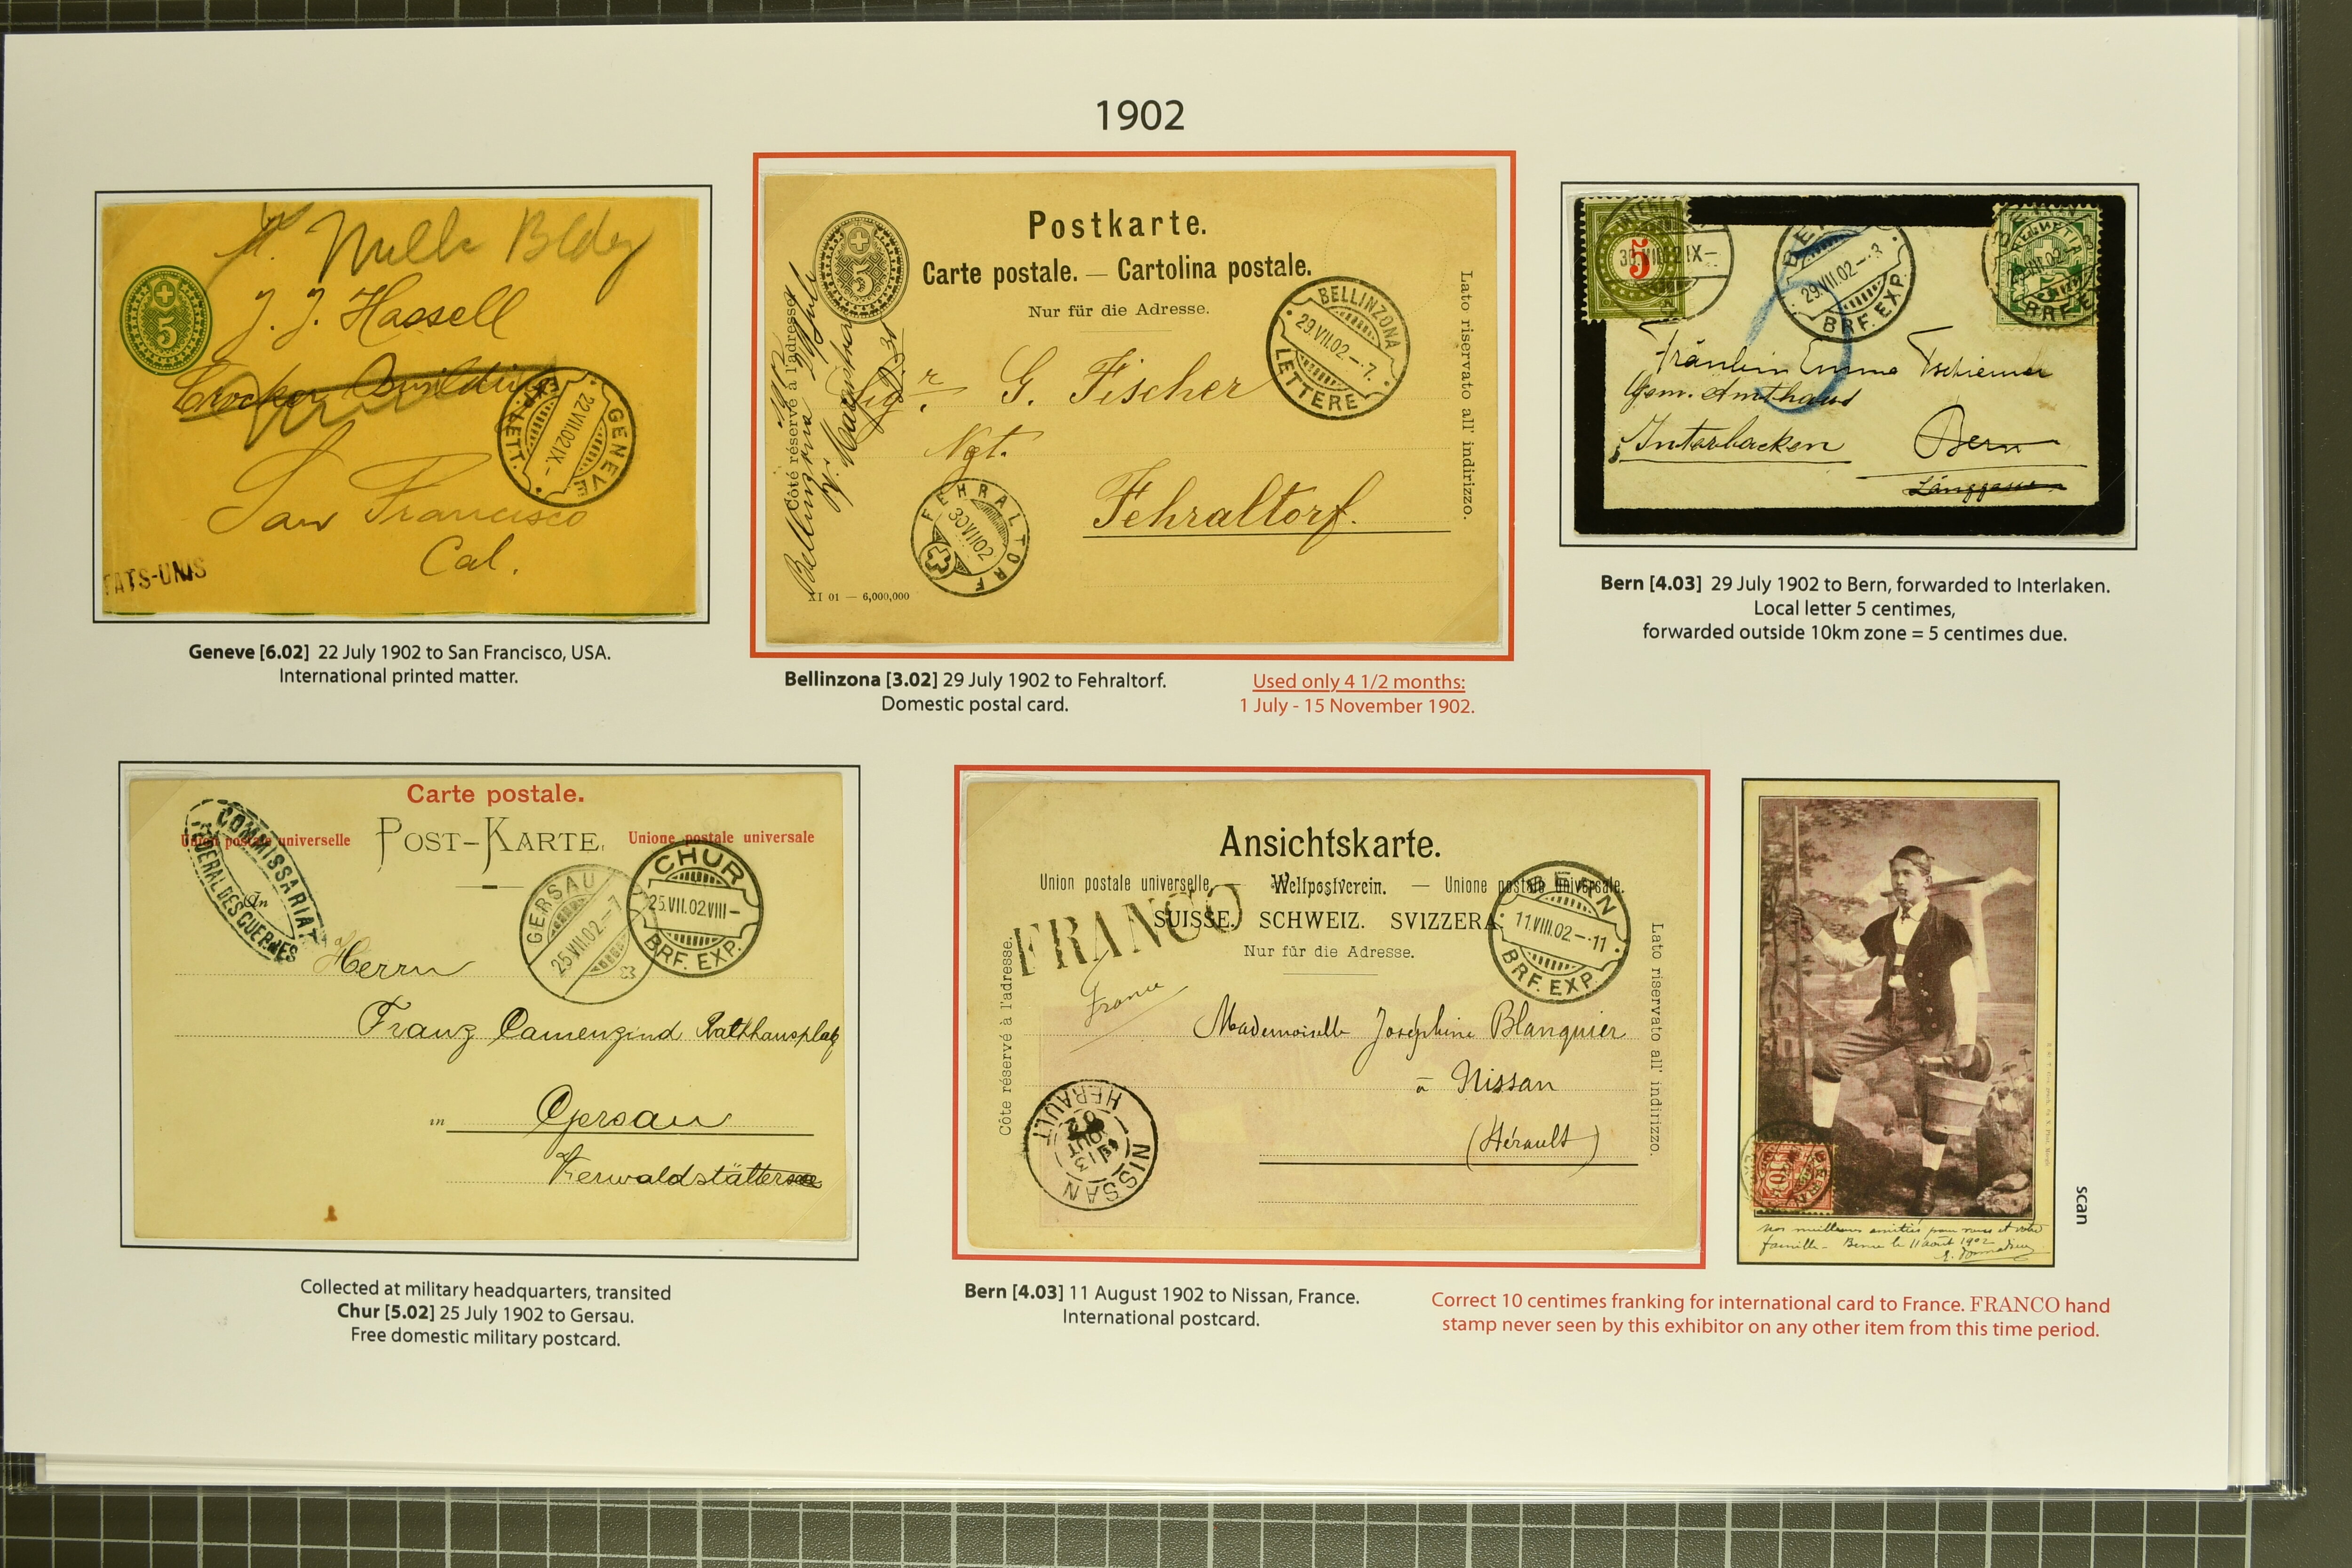 1902
Mills Bldg
J. J. Hassell
Crocker Building
San Francisco
Cal.
5
GENEVE
22.VII.02.IX-
EXP. LETT.
TATS-UNIS
Geneve [6.02] 22 July 1902 to San Francisco, USA.
International printed matter.
Postkarte.
Carte postale. — Cartolina postale.
Nur für die Adresse.
5
Côté réservé à l'adresse.
Lato riservato all' indirizzo.
BELLINZONA
29.VII.02.–.7.
LETTERE
G. Fischer
Ngt.
Fehraltorf.
FEHRALTORF
30 VII 02
XI 01 — 6,000,000
Bellinzona [3.02] 29 July 1902 to Fehraltorf.
Domestic postal card.
Used only 4 1/2 months:
1 July - 15 November 1902.
5
HELVETIA
29.VII.02.–.3
BRF. EXP.
Fräulein Emma Tschiemer
Gsm. Amthaus
Interlacken Bern
Länggasse
Bern [4.03] 29 July 1902 to Bern, forwarded to Interlaken.
Local letter 5 centimes,
forwarded outside 10km zone = 5 centimes due.
Carte postale.
Union postale universelle POST-KARTE. Unione postale universale
COMMISSARIAT
FÉDÉRAL DES GUERRES
An
GERSAU
25.VII.02.–7
CHUR
25.VII.02.VIII–
BRF. EXP.
Herrn
Franz Camenzind Rathhausplatz
in Gersau
Vierwaldstättersee
Collected at military headquarters, transited
Chur [5.02] 25 July 1902 to Gersau.
Free domestic military postcard.
Ansichtskarte.
Union postale universelle. — Weltpostverein. — Unione postale universale.
SUISSE. SCHWEIZ. SVIZZERA.
Nur für die Adresse.
FRANCO
France
BERN
11.VIII.02.–.11
BRF. EXP.
Côté réservé à l'adresse.
Lato riservato all' indirizzo.
Mademoiselle Joséphine Blanquier
à Nissan
(Hérault)
NISSAN
HERAULT
Bern [4.03] 11 August 1902 to Nissan, France.
International postcard.
10
Nos meilleurs amitiés pour vous et votre
famille – Berne le 11 août 1902
scan
Correct 10 centimes franking for international card to France. FRANCO hand
stamp never seen by this exhibitor on any other item from this time period.